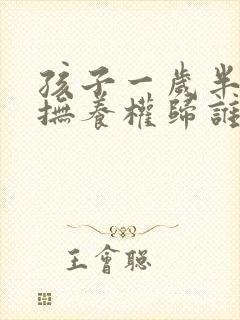 孩子一歲半
撫養權歸誰
王會聰